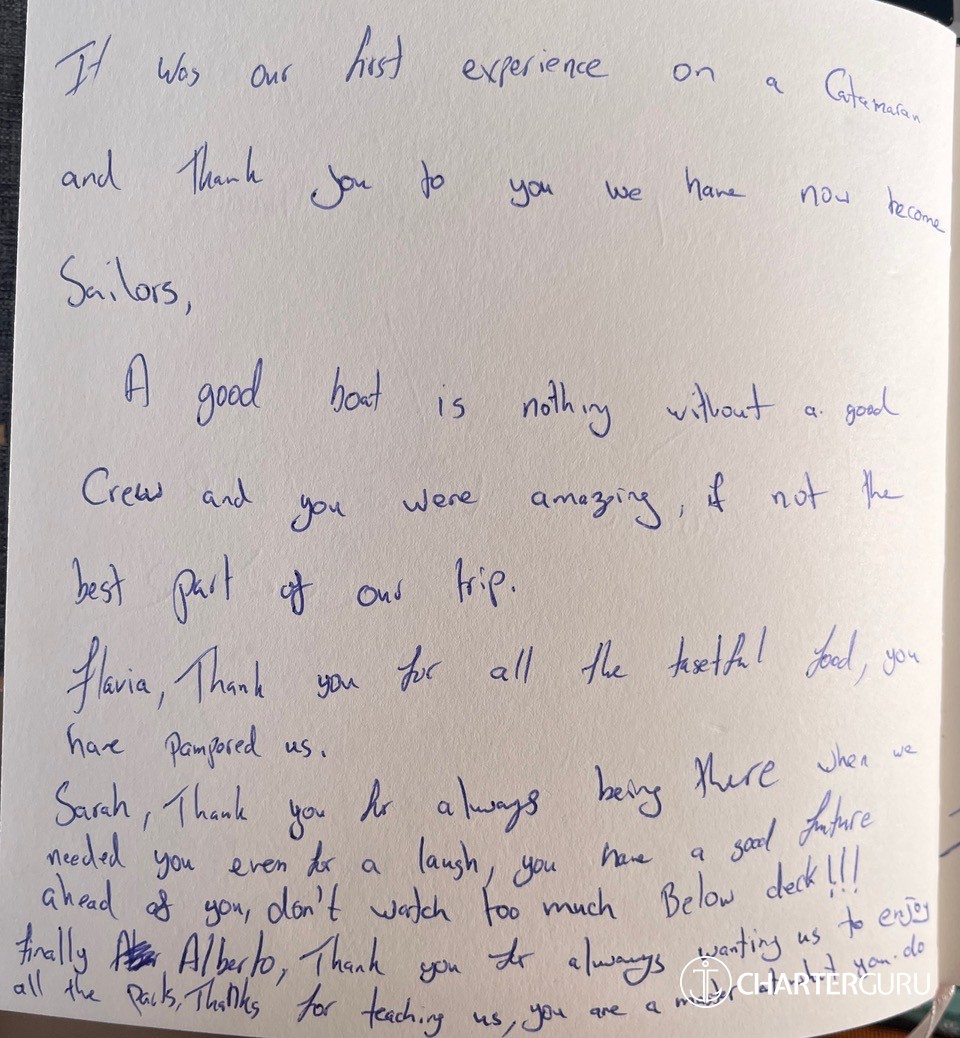 It was our first experience on a Catamaran
and Thank you to you we have now become
Sailors,
A good boat is nothing without a good
Crew and you were amazing, if not the
best part of our trip.
flavia, Thank you for all the tasetful food, you
have pampored us.
Sarah, Thank you for always being there when we
needed you even for a laugh, you have a good future
ahead of you, don't watch too much Below deck!!!
finally Alberto, Thank you for always wanting us to enjoy
all the Parts, Thanks for teaching us, you are a you do
CHARTERGURU